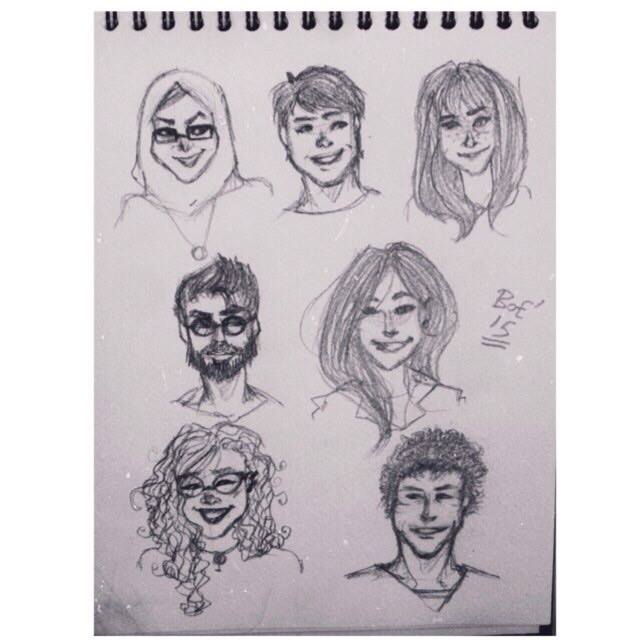 Bot'
'15